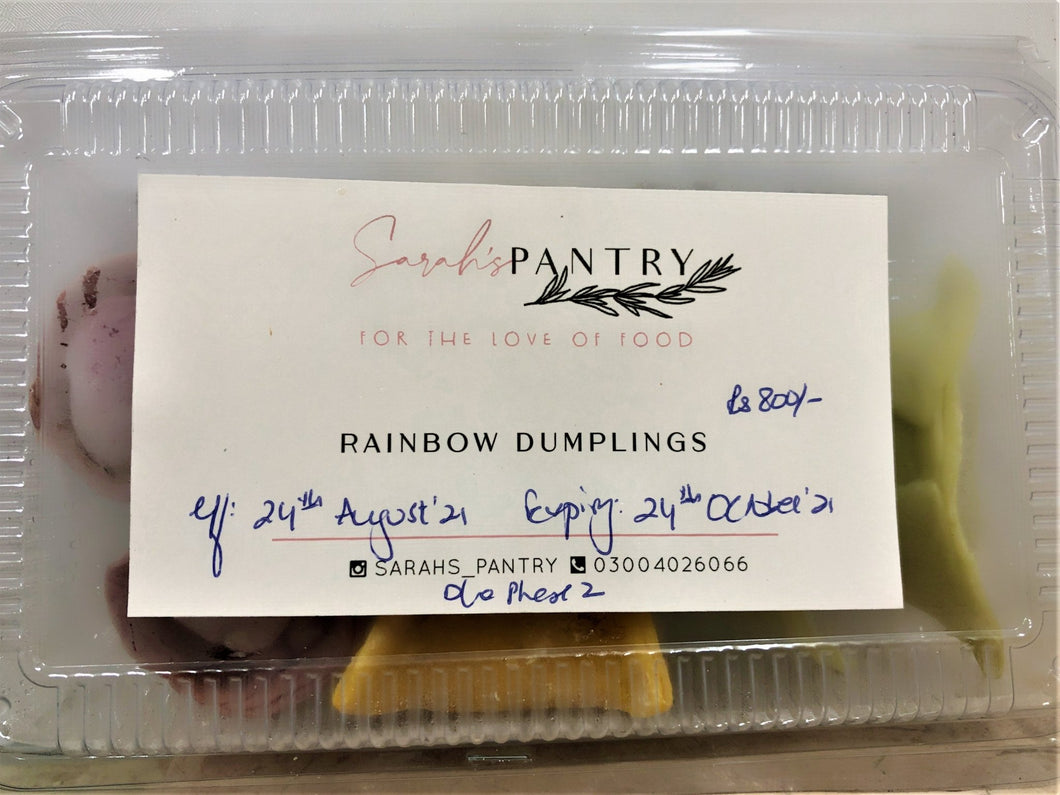 Sarah's PANTRY
FOR THE LOVE OF FOOD
Rs 800/-
RAINBOW DUMPLINGS
eff: 24th August'21 Expiring: 24th October'21
SARAHS_PANTRY 03004026066
Phase 2